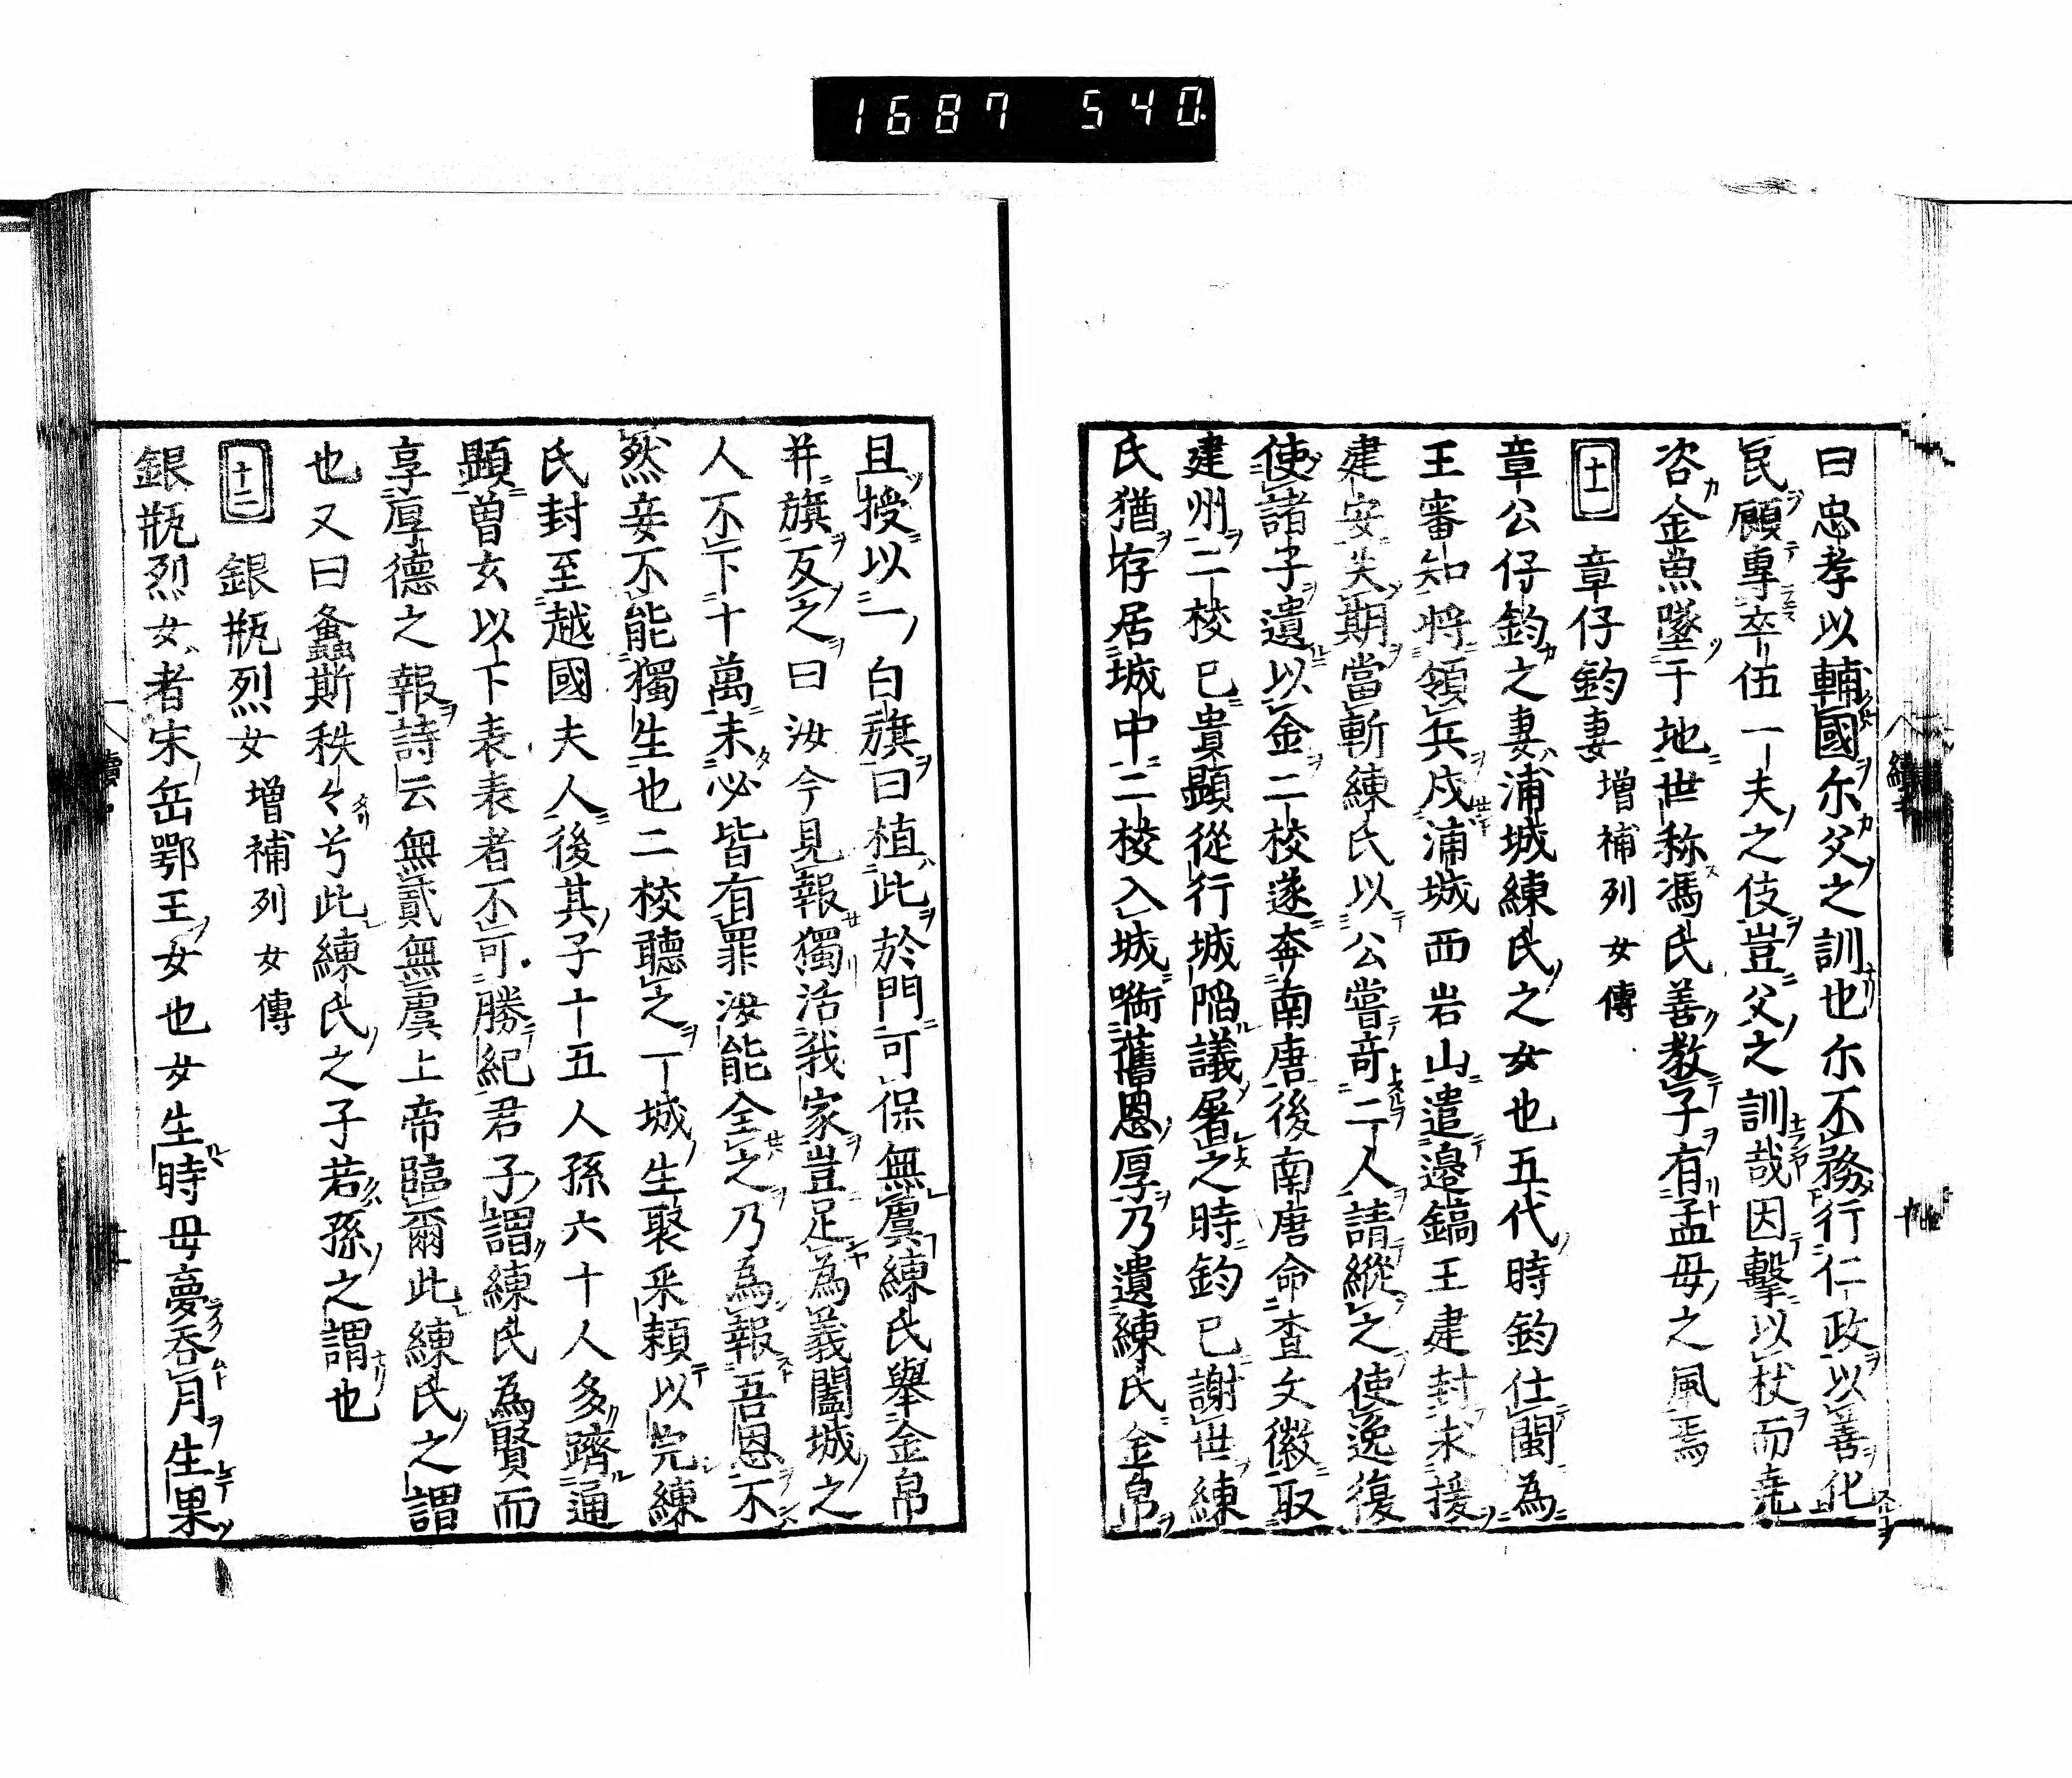 1687 540
曰忠孝以輔國尓父之訓也尓不務行仁政以善化
民顧專卒伍一夫之伎豈父之訓哉因擊以杖而尭
咨金魚墜于地世称馮氏善教子有孟母之風焉
十一 章仔鈞妻 增補列女傳
章公仔鈞之妻浦城練氏之女也五代時鈞仕閩為
王審知將領兵戍浦城西岩山遣邉鎬王建封求援
建安失期當斬練氏以公嘗竒二人請縱之使逸復
使諸子遺以金二校遂奔南唐後南唐命查文徽取
建州二校已貴顕從行城陷議屠之時鈞已謝世練
氏猶存居城中二校入城啣舊恩厚乃遺練氏金帛
且授以一白旗曰植此於門可保無虞練氏舉金帛
并旗反之曰汝今見報獨活我家豈足為義闔城之
人不下十萬未必皆有罪汝能全之乃為報吾恩不
然妾不能獨生也二校聽之一城生聚釆頼以完練
氏封至越國夫人後其子十五人孫六十人多躋通
顕曾玄以下表表者不可勝紀君子謂練氏為賢而
享厚德之報詩云無貳無虞上帝臨爾此練氏之謂
也又曰螽斯秩々兮此練氏之子若孫之謂也
十二 銀瓶烈女 增補列女傳
銀瓶烈女者宋岳鄂王女也女生時毋夢吞月生果